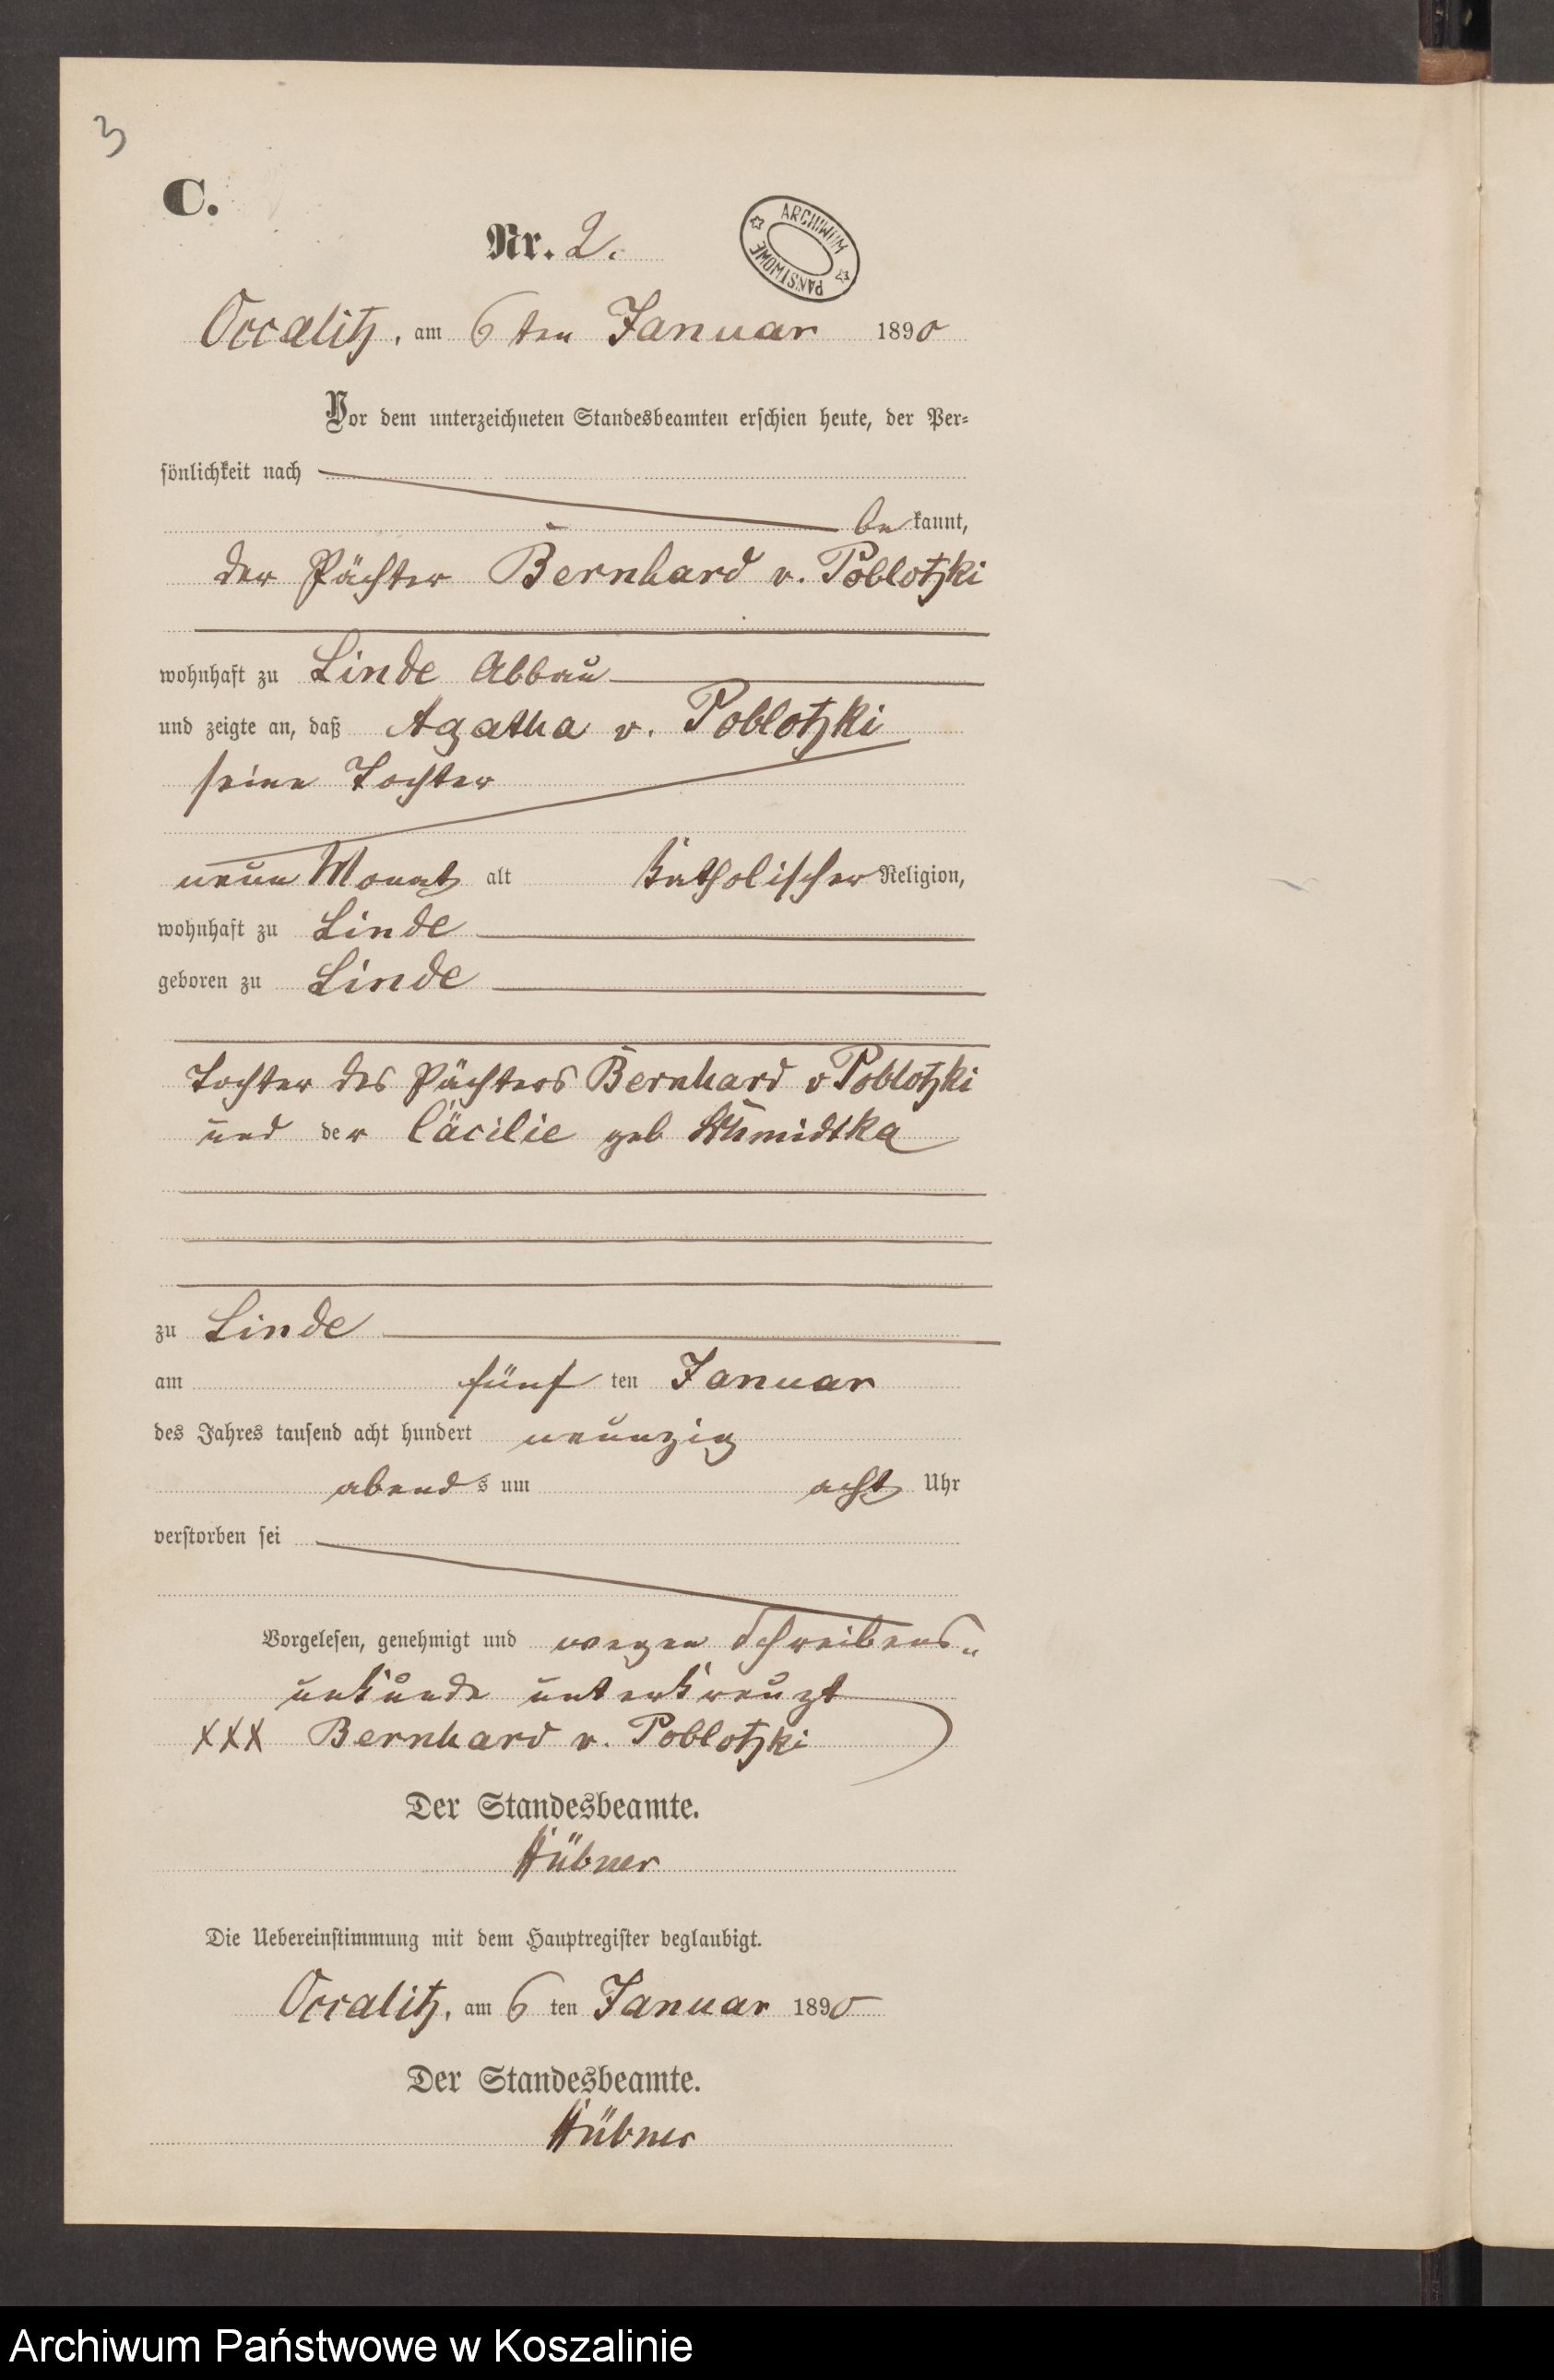 3
C.
Nr. 2.
ARCHIWUM PAŃSTWOWE
Occalitz, am 6 ten Januar 1890
Vor dem unterzeichneten Standesbeamten erschien heute, der Per-
sönlichkeit nach
be kannt,
der Pächter Bernhard v. Poblotzki
wohnhaft zu Linde Abbau
und zeigte an, daß Agatha v. Poblotzki
seine Tochter
neun Monat alt katholischer Religion,
wohnhaft zu Linde
geboren zu Linde
Tochter des Pächters Bernhard v Poblotzki
und der Cäcilie geb Schmidtka
zu Linde
am fünf ten Januar
des Jahres tausend acht hundert neunzig
abend s um acht Uhr
verstorben sei
Vorgelesen, genehmigt und wegen Schreibens-
unkunde unterkreuzt
XXX Bernhard v. Poblotzki
Der Standesbeamte.
Hübner
Die Uebereinstimmung mit dem Hauptregister beglaubigt.
Occalitz, am 6 ten Januar 1890
Der Standesbeamte.
Hübner
Archiwum Państwowe w Koszalinie